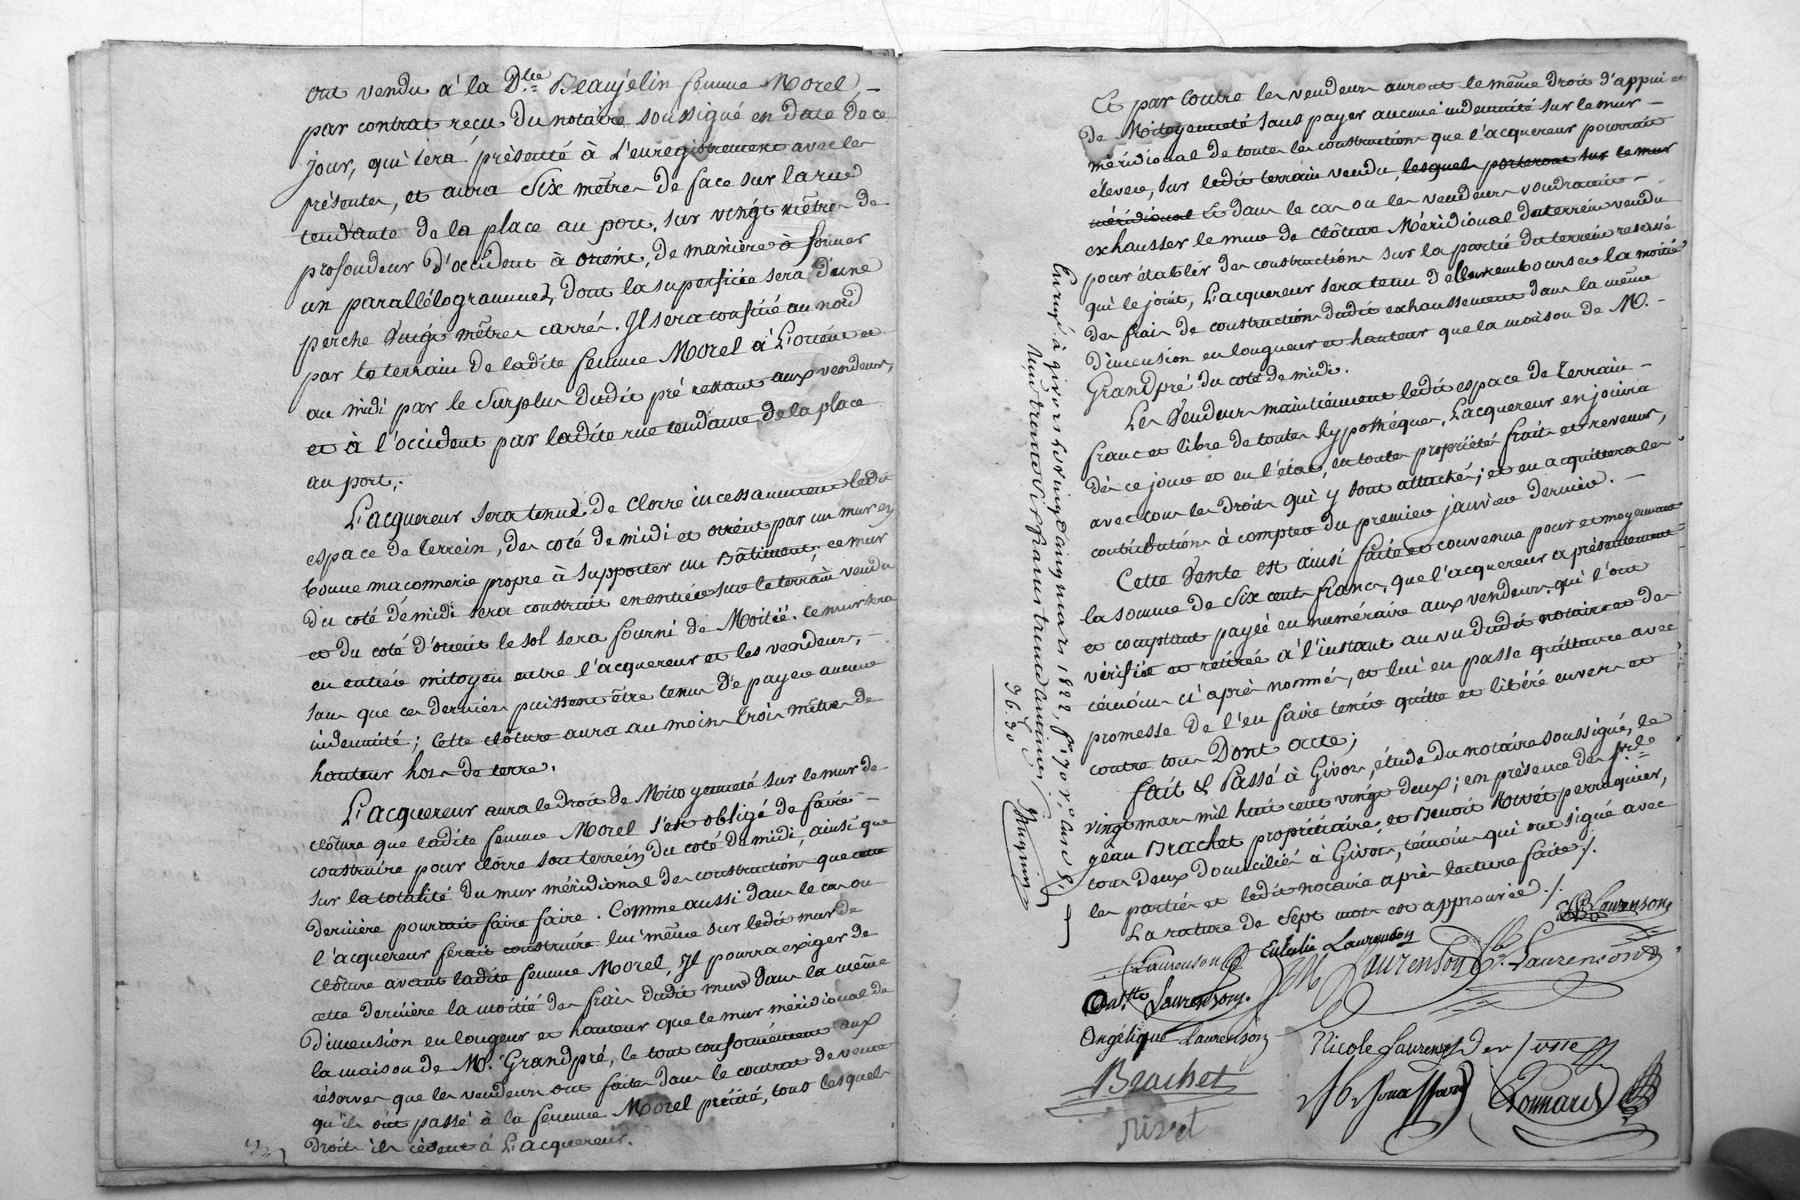 ont vendu à la D.lle Beaujelin femme Morel, –
par contrat reçu du notaire soussigné en date de ce
jour, qui sera présenté à L'enregistrement avec les
présentes, et aura Six mètres de face sur la rue
tendante de la place au port, sur vingt mètres de
profondeur d'occident à orient, de manière à former
un parallélogramme, dont la superficie sera d'une
perche vingt mètres carrés. Il sera confiné au nord
par le terrain de ladite femme Morel à L'orient et
au midi par le Surplus dudit pré restant aux vendeurs,
et à l'occident par ladite rue tendante de la place
au port.
L'acquereur sera tenu de Clorre incessamment ledit
espace de terrein, des coté de midi et orient par un mur en
bonne maconnerie propre à supporter un Bâtiment; ce mur
du coté de midi sera construit en entier sur le terrain vendu
et du coté d'orient le sol sera fourni de Moitié. Ce mur sera
en entier mitoyen entre l'acquereur et les vendeurs, –
sans que ces derniers puissent être tenus de payer aucune
indemnité; Cette clôture aura au moins trois mètres de
hauteur hors de terre.
L'acquereur aura le droit de Mitoyenneté sur le mur de
clôture que ladite femme Morel s'est obligé de faire –
construire pour clôrre son terrein du coté de midi, ainsi que
sur la totalité du mur méridional des constructions que cette
dernière pourrait faire faire. Comme aussi dans le cas ou
l'acquereur ferait construire lui même sur ledit mur de
clôture avant ladite femme Morel, Il pourra exiger de
cette dernière la moitié des frais dudit mur dans la même
dimension en longueur et hauteur que le mur méridional de
la maison de Mr. Grandpré, le tout conformément aux
réserves que les vendeurs ont faites dans le contrat de vente
qu'ils ont passé à la femme Morel précité, tous lesquels
droits ils cèdent à L'acquereur.
Et par Contre les vendeurs auront le même droit d'appui et
de Mitoyenneté sans payer aucune indemnité sur le mur –
méridional de toutes les constructions que l'acquereur pourrait
élever, sur ledit terrain vendu, lesquels porteront sur le mur
méridional Et dans le cas ou les vendeurs voudraient –
exhausser le mur de clôture Méridional du terrein vendu
pour établir des constructions sur la partie du terrein reservé
qui le joint, L'acquereur sera tenu de leur rembourser la moitié
des frais de construction dudit exhaussement dans la même
dimension en longueur et hauteur que la maison de Mr. –
Grandpré du coté de midi.
Les Vendeurs maintiennent ledit espace de terrain –
franc et libre de toutes hypothèques, L'acquereur en jouira
dès ce jour et en l'état, en toute propriété fruits et revenus,
avec tous les droits qui y sont attachés; et en acquittera les
contributions à compter du premier janvier dernier. –
Cette Vente est ainsi faite et convenue pour et moyennant
la somme de Six cents francs, que l'acquereur a présentement
et comptant payée en numéraire aux vendeurs, qui l'ont
vérifiée et retirée à l'instant au vu dudit notaire et des
témoins ci après nommés, et lui en passe quittance avec
promesse de l'en faire tenir quitte et libéré envers et
contre tous Dont acte;
fait & Passé à Givors, étude du notaire soussigné, le
vingt mars mil huit cent vingt deux; en présence de
jean Brachet propriétaire, et Benoit Rivet perruquier,
tous deux domiciliés à Givors, témoins qui ont signé avec
les parties et ledit notaire après lecture faite./.
La rature de Sept mots est approuvée./.
Laurenson
Laurenson Eulalie Laurenson M Laurenson Laurenson
Laurenson
Angélique Laurenson Nicole Laurenson
Brachet
rivet
Enreg.é à givors le vingt cinq mars 1822,